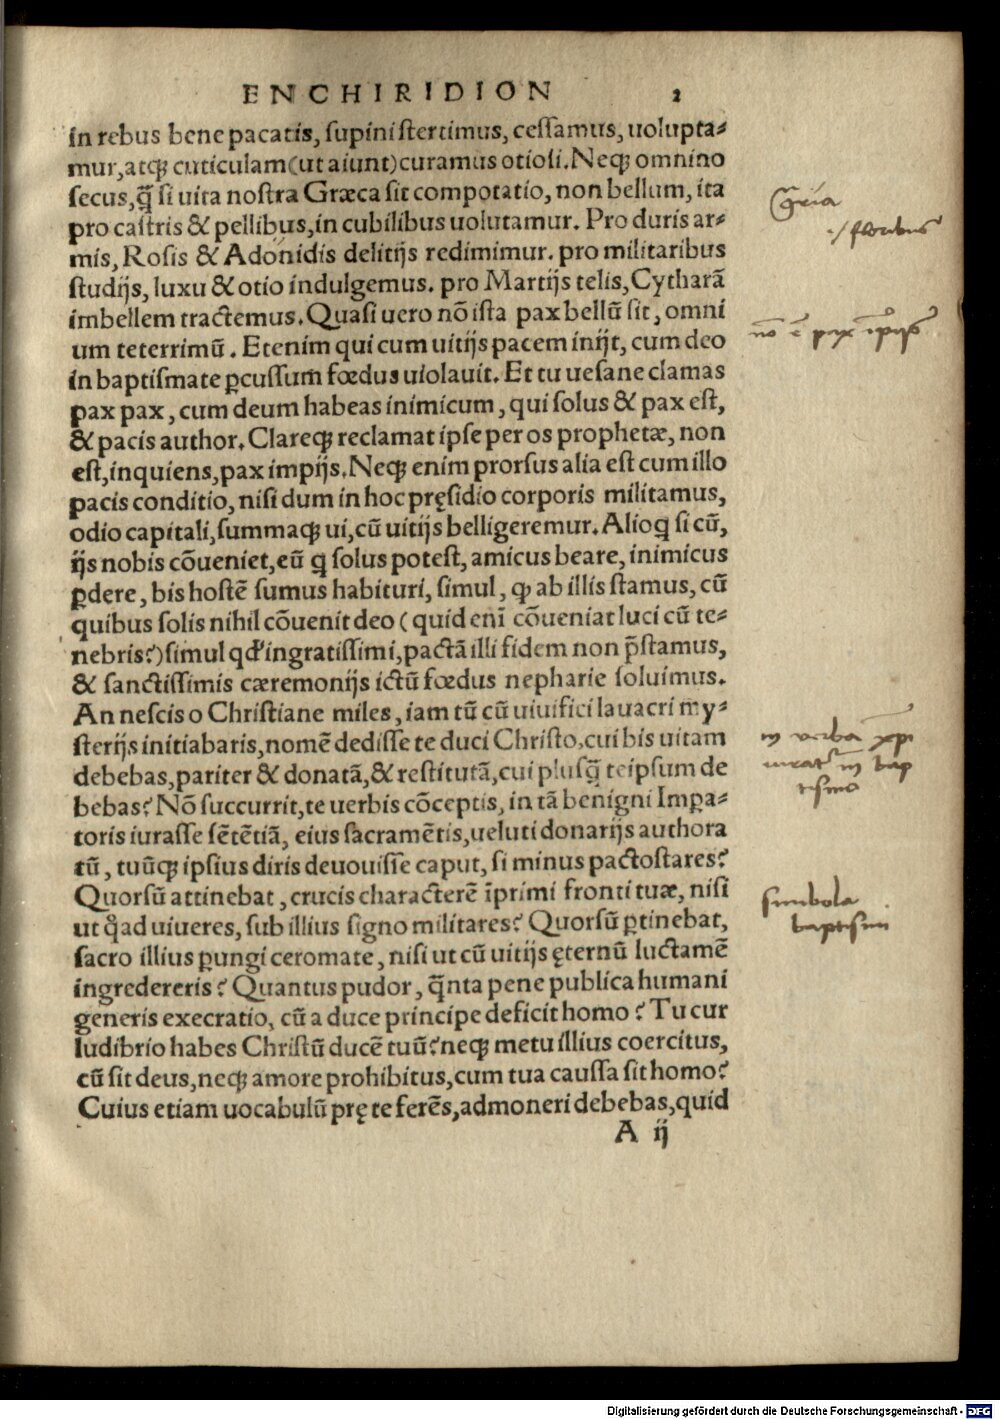 ENCHIRIDION 2
in rebus bene pacatis, supini stertimus, cessamus, uolupta-
mur, atqꝫ cuticulam (ut aiunt) curamus otiosi. Neqꝫ omnino
secus, q̃ si uita nostra Græca sit compotatio, non bellum, ita
pro castris & pellibus, in cubilibus uolutamur. Pro duris ar-
mis, Rosis & Adonidis delitijs redimimur. pro militaribus
studijs, luxu & otio indulgemus. pro Martijs telis, Cytharã
imbellem tractemus. Quasi uero nõ ista pax bellũ sit, omni
um teterrimũ. Etenim qui cum uitijs pacem inijt, cum deo
in baptismate ꝑcussum fœdus uiolauit. Et tu uesane clamas
pax pax, cum deum habeas inimicum, qui solus & pax est,
& pacis author. Clareqꝫ reclamat ipse per os prophetæ, non
est, inquiens, pax impijs. Neqꝫ enim prorsus alia est cum illo
pacis conditio, nisi dum in hoc pręsidio corporis militamus,
odio capitali, summaqꝫ ui, cũ uitijs belligeremur. Alioq̃ si cũ,
ijs nobis cõueniet, eũ q̃ solus potest, amicus beare, inimicus
ꝑdere, bis hostẽ sumus habituri, simul, ꝙ ab illis stamus, cũ
quibus solis nihil cõuenit deo (quid enĩ cõueniat luci cũ te-
nebris?) simul qđ ingratissimi, pactã illi fidem non p̃stamus,
& sanctissimis cæremonijs ictũ fœdus nepharie soluimus.
An nescis o Christiane miles, iam tũ cũ uiuifici lauacri my-
sterijs initiabaris, nomẽ dedisse te duci Christo, cui bis uitam
debebas, pariter & donatã, & restitutã, cui plusq̃ teipsum de
bebas? Nõ succurrit, te uerbis cõceptis, in tã benigni Impa-
toris iurasse sẽtẽtiã, eius sacramẽtis, ueluti donarijs authora
tũ, tuũqꝫ ipsius diris deuouisse caput, si minus pacto stares?
Quorsũ attinebat, crucis characterẽ ĩprimi fronti tuæ, nisi
ut q̊ad uiueres, sub illius signo militares? Quorsũ ꝑtinebat,
sacro illius ꝑungi ceromate, nisi ut cũ uitijs ęternũ luctamẽ
ingredereris? Quantus pudor, q̃nta pene publica humani
generis execratio, cũ a duce principe deficit homo? Tu cur
ludibrio habes Christũ ducẽ tuũ? neqꝫ metu illius coercitus,
cũ sit deus, neqꝫ amore prohibitus, cum tua caussa sit homo?
Cuius etiam uocabulũ prę te ferẽs, admoneri debebas, quid
A ij
./ floribus
nõ ẽ pax ĩpijs
in verba xp̃i
iurat' in bap
tismo
simbola
baptismi
Digitalisierung gefördert durch die Deutsche Forschungsgemeinschaft - DFG